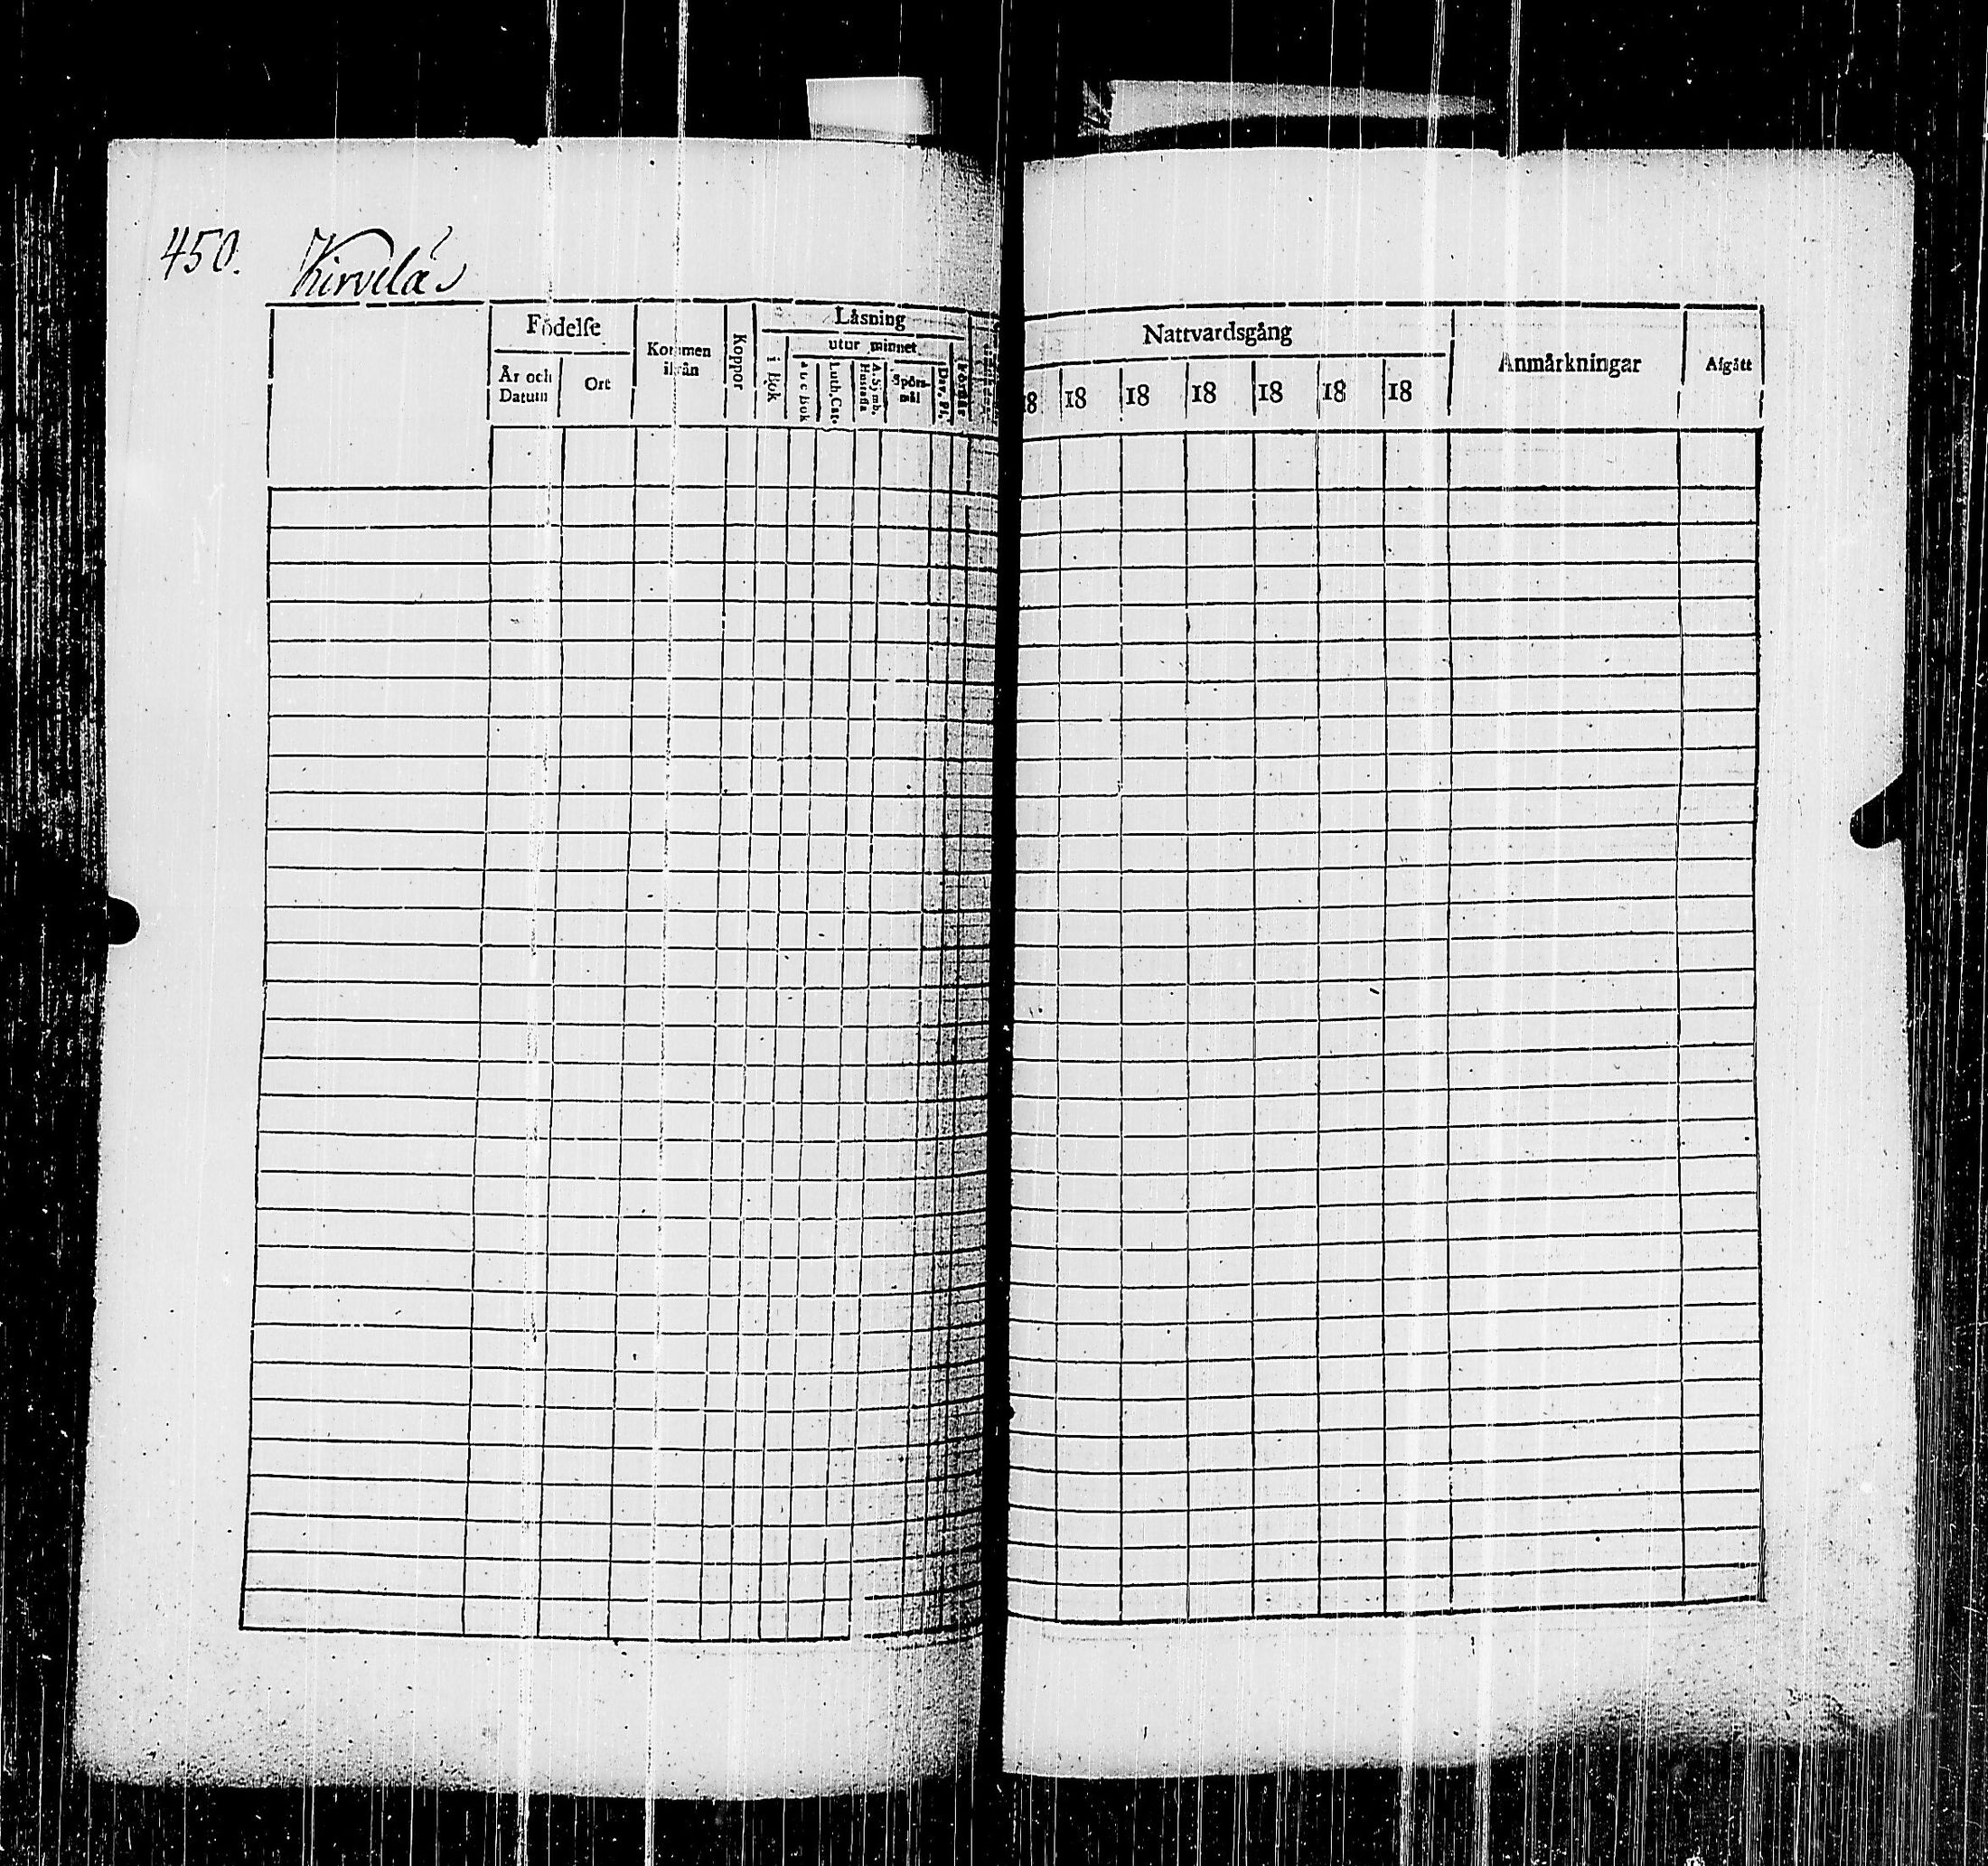 450. Kirvelä
Födelse
År och Datum
Ort
Kommen ifrån
Koppor
Läsning
i Bok
utur minnet
a b c Bok
Luth. Cat.
A. Symb. Hustafla
Spörs-mål
Dav. Ps.
Förstår
Nattvardsgång
18 18 18 18 18 18 18
Anmärkningar
Afgått